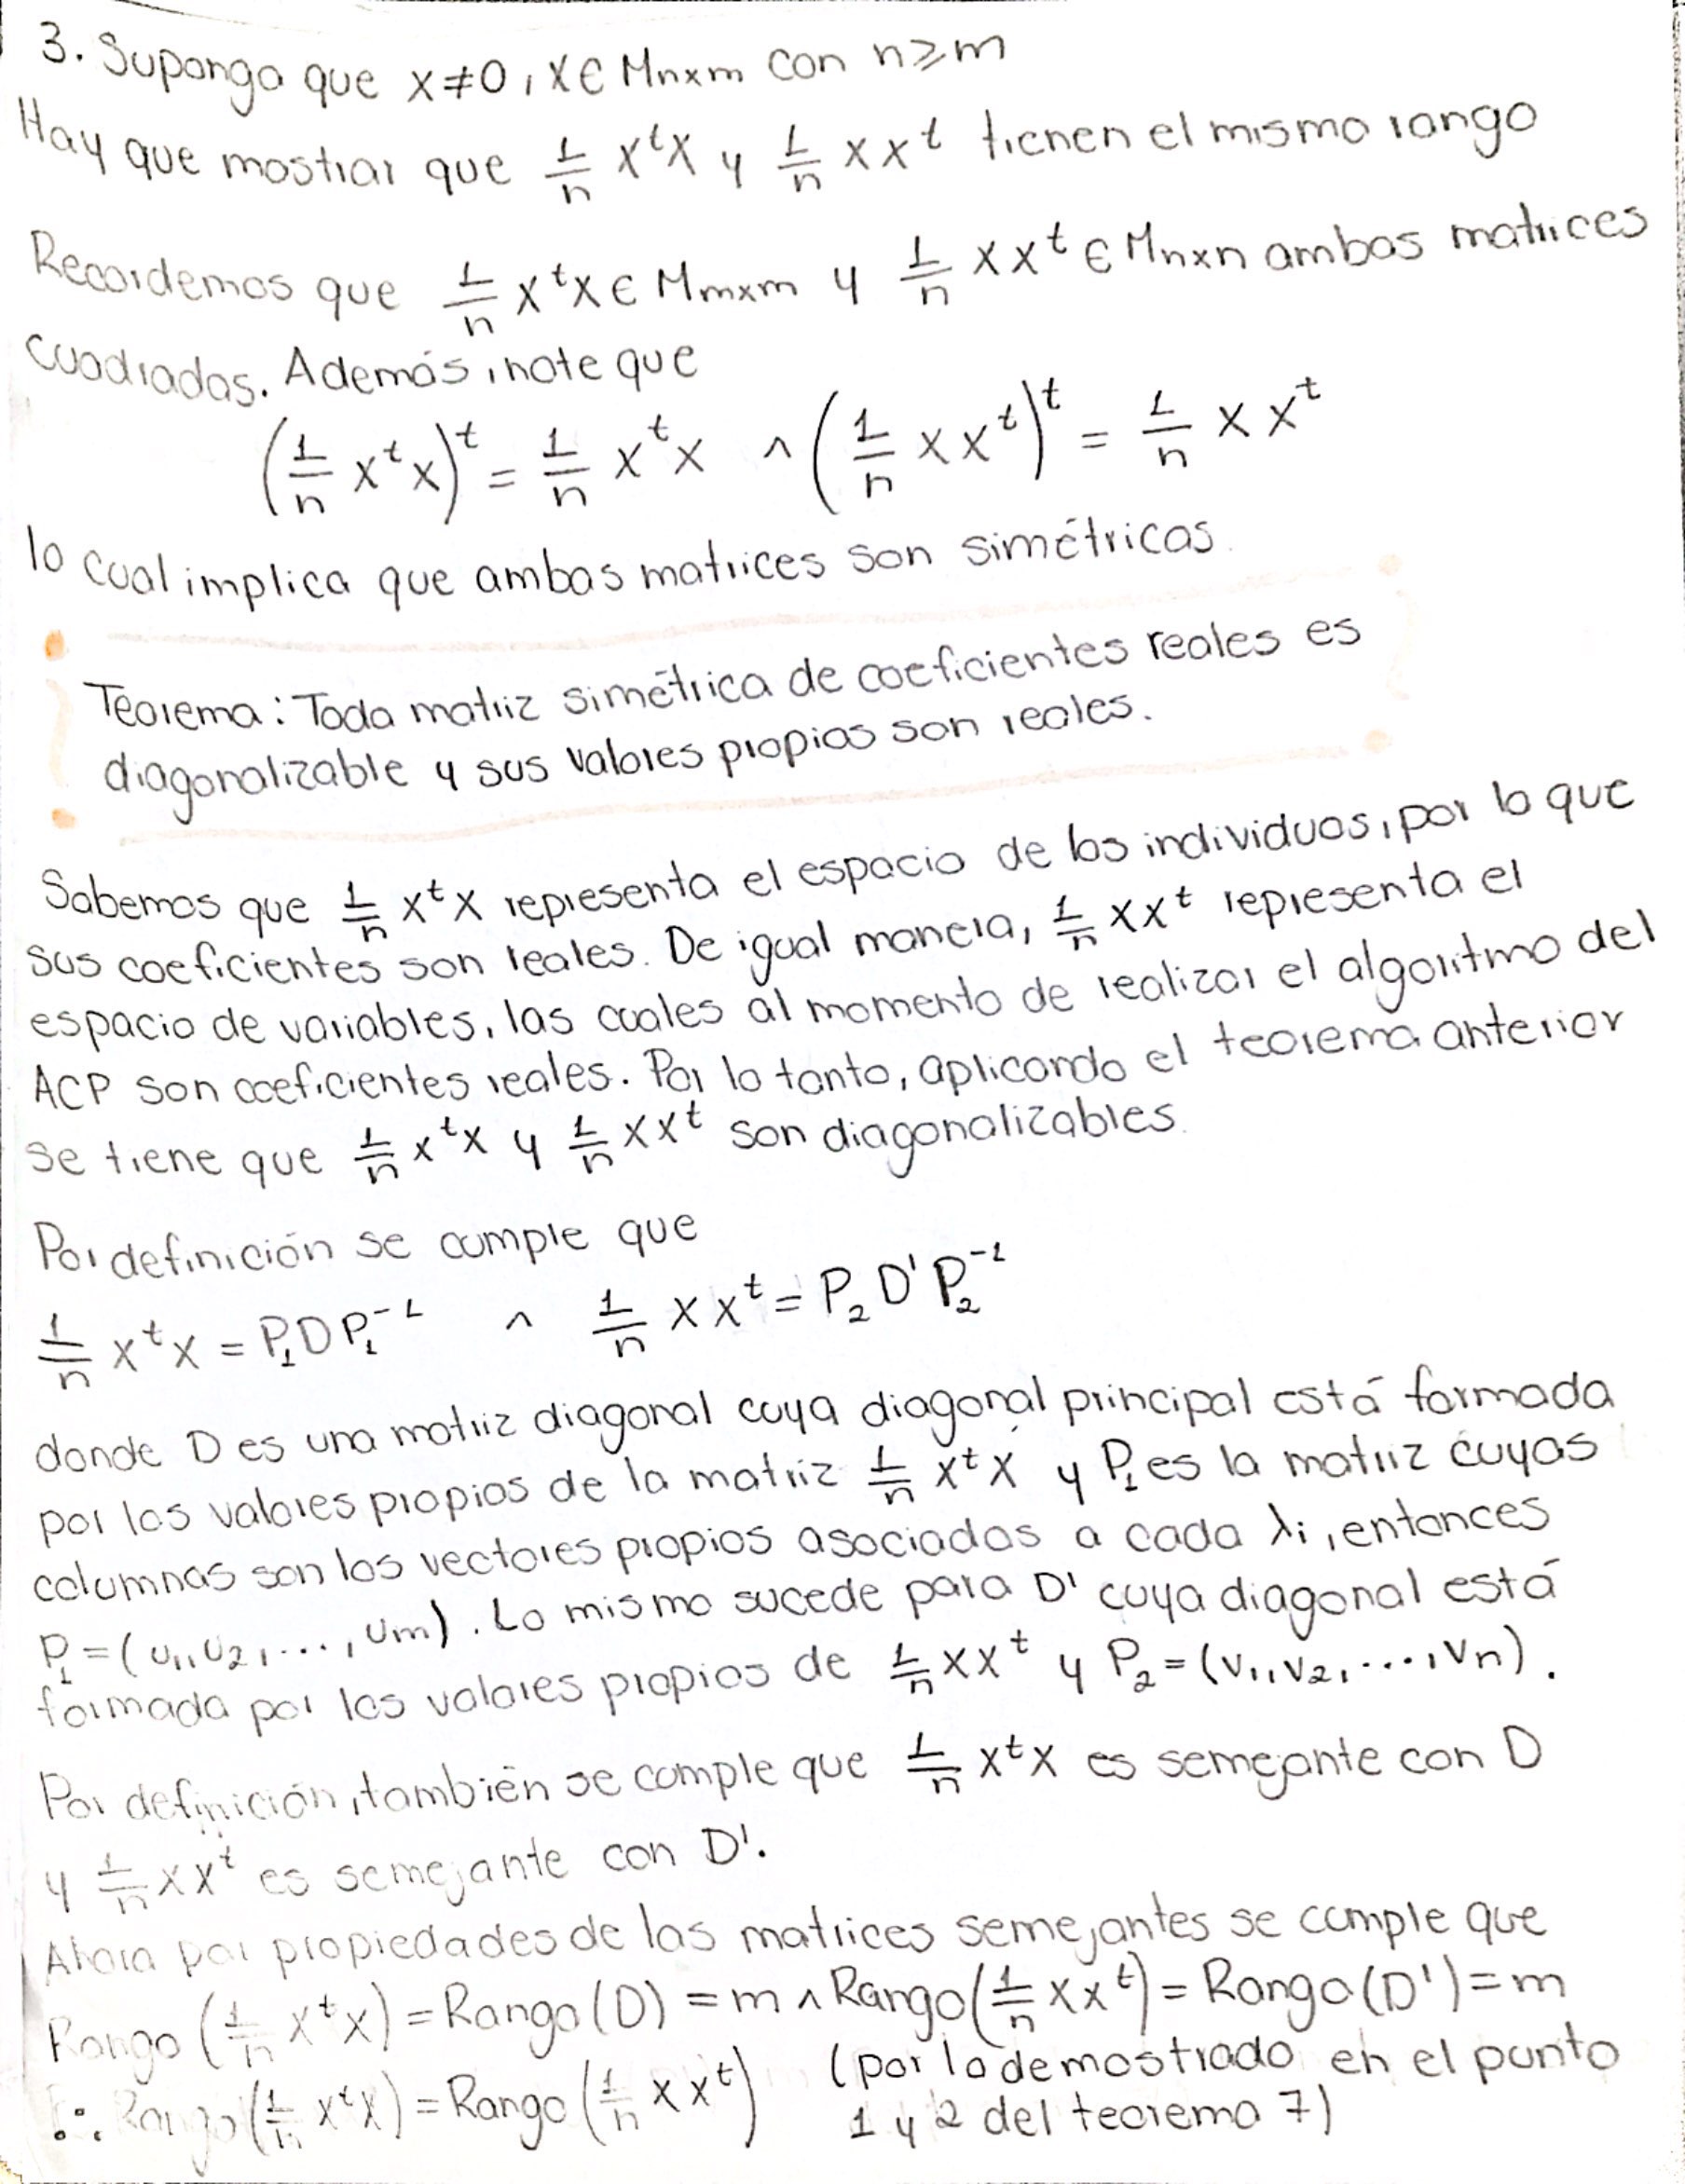 3. Suponga que x≠0, x∈Mnxm con n≥m
Hay que mostrar que 1/n XᵗX y 1/n XXᵗ tienen el mismo rango
Recordemos que 1/n XᵗX ∈ Mmxm y 1/n XXᵗ ∈ Mnxn ambas matrices
cuadradas. Además, note que
(1/n XᵗX)ᵗ = 1/n XᵗX ∧ (1/n XXᵗ)ᵗ = 1/n XXᵗ
lo cual implica que ambas matrices son simétricas.
Teorema: Toda matriz simétrica de coeficientes reales es
diagonalizable y sus valores propios son reales.
Sabemos que 1/n XᵗX representa el espacio de los individuos, por lo que
sus coeficientes son reales. De igual manera, 1/n XXᵗ representa el
espacio de variables, las cuales al momento de realizar el algoritmo del
ACP son coeficientes reales. Por lo tanto, aplicando el teorema anterior
se tiene que 1/n XᵗX y 1/n XXᵗ son diagonalizables.
Por definición se cumple que
1/n XᵗX = P₁DP₁⁻¹ ∧ 1/n XXᵗ = P₂D'P₂⁻¹
donde D es una matriz diagonal cuya diagonal principal está formada
por los valores propios de la matriz 1/n XᵗX y P₁ es la matriz cuyas
columnas son los vectores propios asociados a cada λi, entonces
P₁ = (u₁, u₂, ..., um). Lo mismo sucede para D' cuya diagonal está
formada por los valores propios de 1/n XXᵗ y P₂ = (v₁, v₂, ..., vn).
Por definición, también se cumple que 1/n XᵗX es semejante con D
y 1/n XXᵗ es semejante con D'.
Ahora por propiedades de las matrices semejantes se cumple que
Rango (1/n XᵗX) = Rango (D) = m ∧ Rango (1/n XXᵗ) = Rango (D') = m
∴ Rango (1/n XᵗX) = Rango (1/n XXᵗ) (por lo demostrado en el punto
1 y 2 del teorema 7)